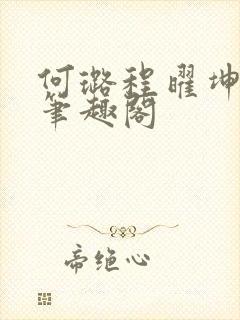 何璐程曜坤
筆趣閣
帝绝心